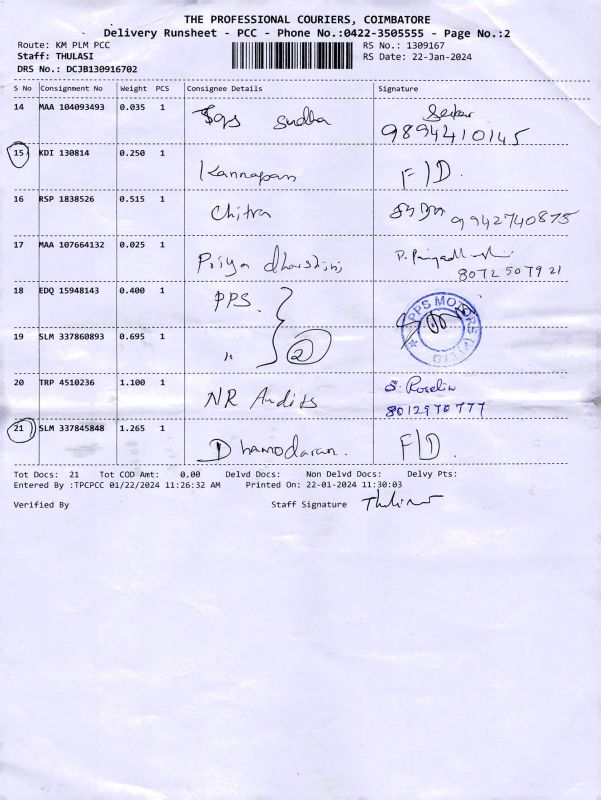 THE PROFESSIONAL COURIERS, COIMBATORE
Delivery Runsheet - PCC - Phone No.:0422-3505555 - Page No.:2
Route: KM PLM PCC RS No.: 1309167
Staff: THULASI RS Date: 22-Jan-2024
DRS No.: DCJB130916702
S No Consignment No Weight PCS Consignee Details Signature
14 MAA 104093493 0.035 1 Sudha
9894410145
15 KDI 130814 0.250 1 Kannapan F/D.
16 RSP 1838526 0.515 1 Chitra 9942740875
17 MAA 107664132 0.025 1 Priya dharshini
8072507921
18 EDQ 15948143 0.400 1 PPS. PPS MOTORS (P) LTD
19 SLM 337860893 0.695 1 " 2
20 TRP 4510236 1.100 1 NR Audits S. Roselin
8012970777
21 SLM 337845848 1.265 1 Dhamodaran. F/D.
Tot Docs: 21 Tot COD Amt: 0.00 Delvd Docs: Non Delvd Docs: Delvy Pts:
Entered By :TPCPCC 01/22/2024 11:26:32 AM Printed On: 22-01-2024 11:30:03
Verified By Staff Signature